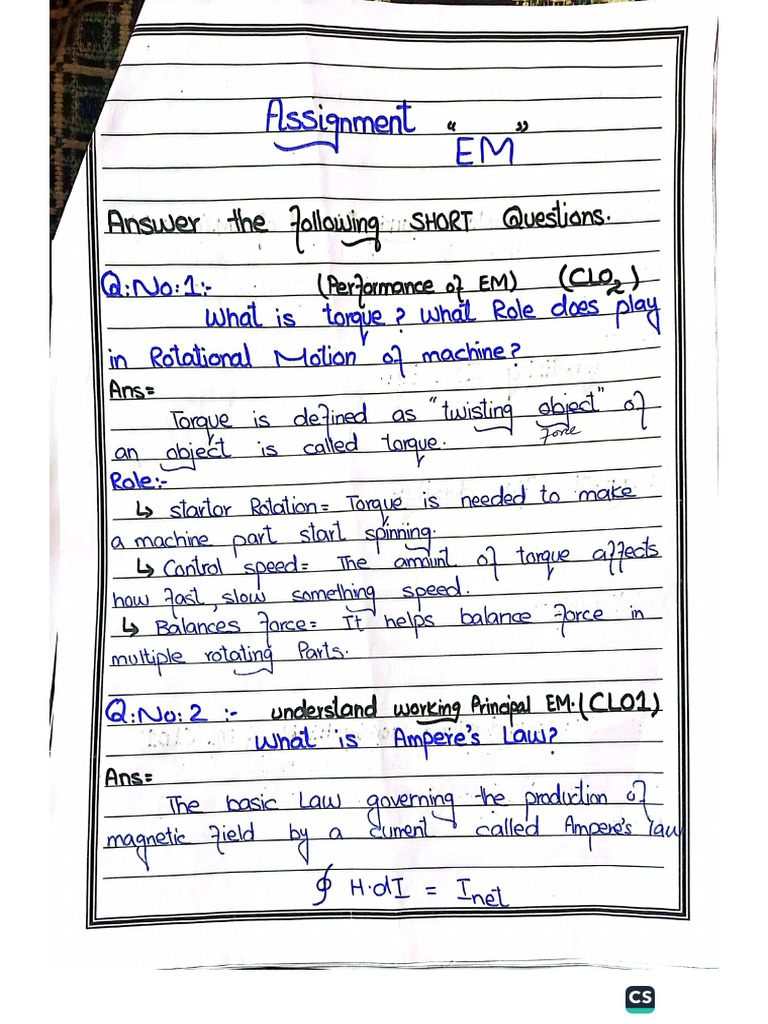 Assignment "EM"
Answer the following SHORT Questions.
Q:No:1:- (Performance of EM) (CLO2)
What is torque? What Role does play
in Rotational Motion of machine?
Ans=
Torque is defined as "twisting object" of
force
an object is called torque.
Role:-
↳ startor Rotation= Torque is needed to make
a machine part start spinning.
↳ Control speed= The amount of torque affects
how fast, slow something speed.
↳ Balances force= It helps balance force in
multiple rotating Parts.
Q:No:2 :- understand working Principal EM.(CLO1)
What is Ampere's Law?
Ans=
The basic Law governing the production of
magnetic field by a current called Ampere's law
∮ H·dI = Inet
CS